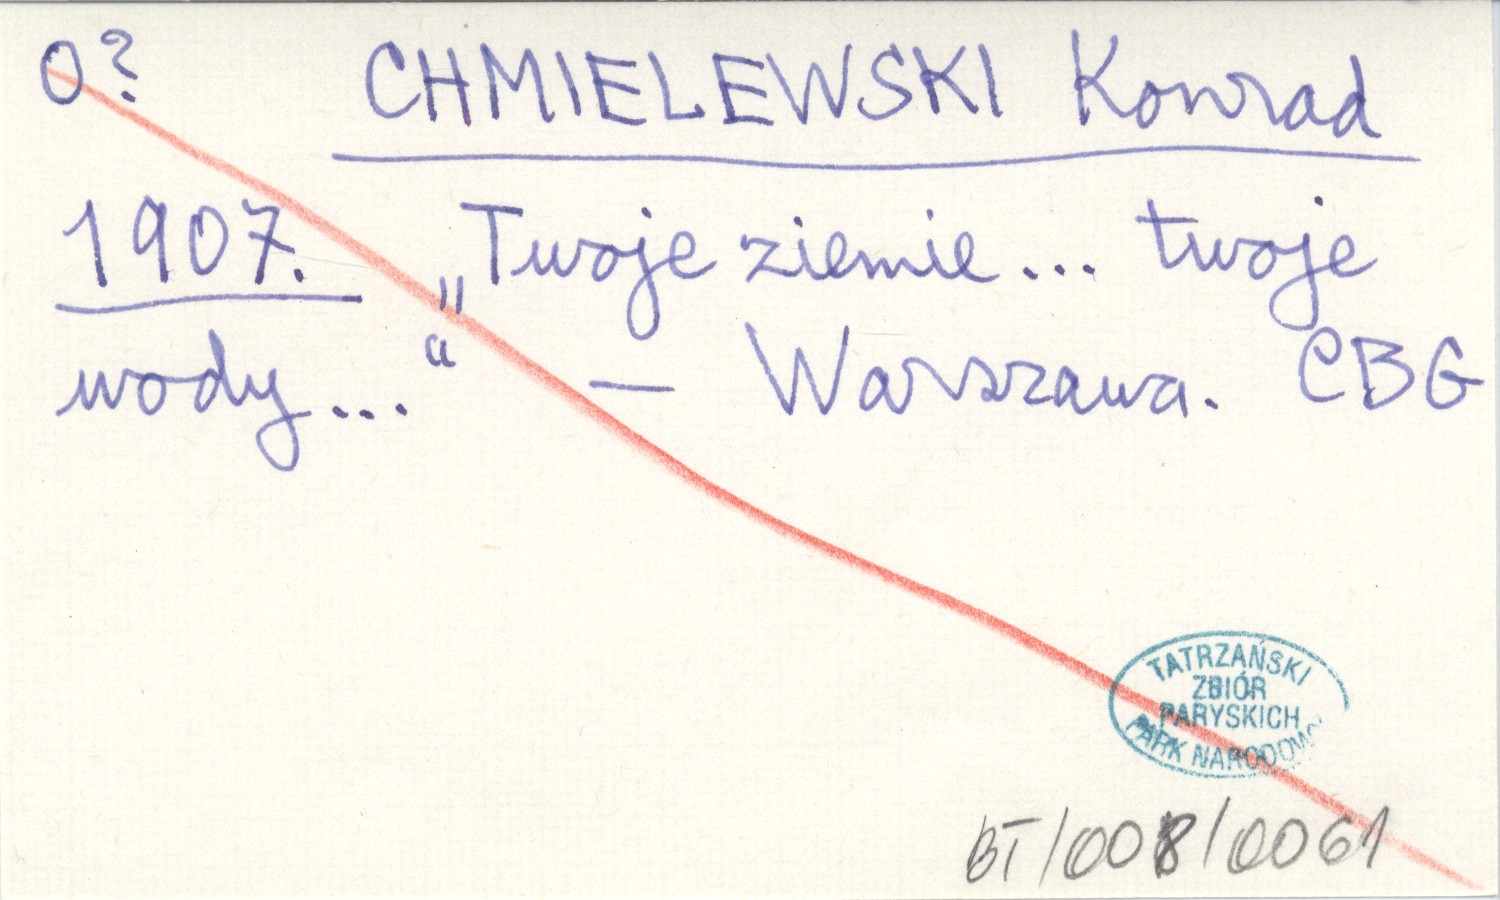 O? CHMIELEWSKI Konrad
1907. „Twoje ziemie... twoje
wody..." — Warszawa. CBG
TATRZAŃSKI
ZBIÓR
PARYSKICH
PARK NARODOWY
BT/008/0061